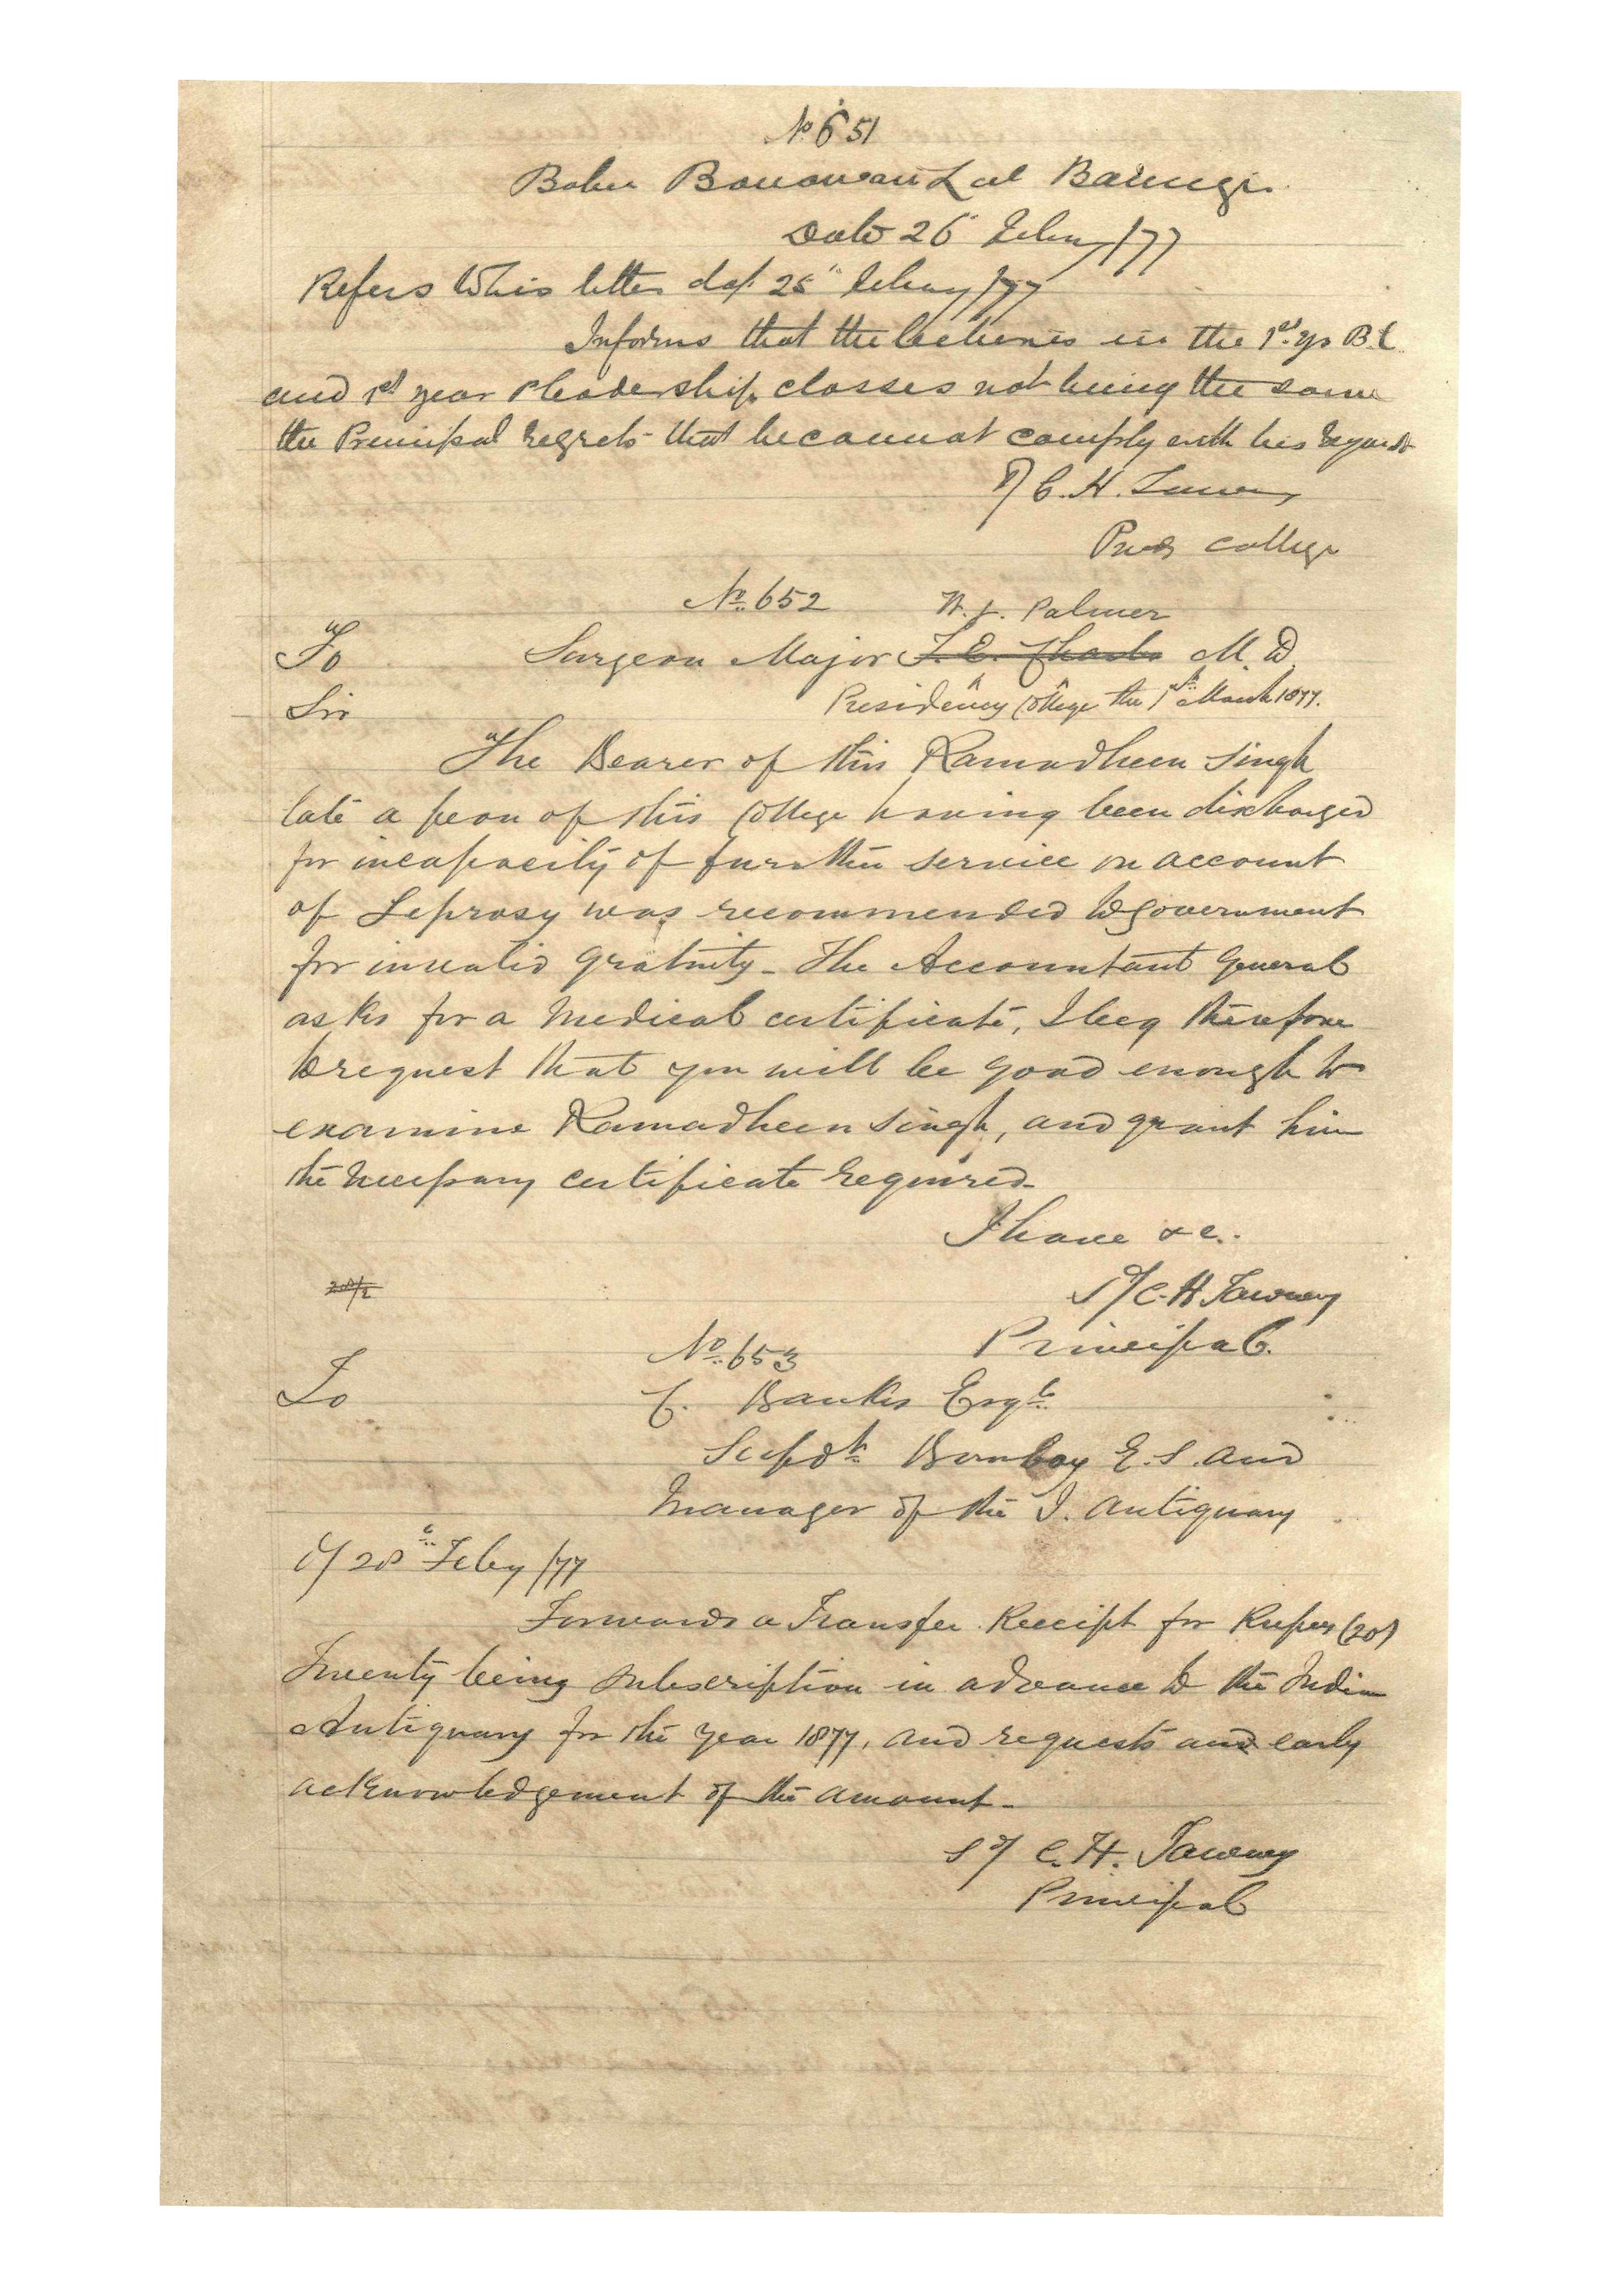 No 651
Babu Bonowari Lal Banerji
Date 26 Feby/77
Refers to his letter dd/ 25th Feby/77
Informs that the lectures in the 1st yr B.L.
and 1st year Pleadership classes not being the same
the Principal regrets that he cannot comply with his request
S/ C. H. Tawney
Pres College
No. 652 W. J. Palmer
To Surgeon Major F. C. Charles M. D
Sir Presidency College the 1st March 1877.
The Bearer of this Ramadheen Singh
late a peon of this College having been discharged
for incapacity of further service on account
of Leprosy was recommended to government
for invalid gratuity - The Accountant General
asks for a medical certificate, I beg therefore
to request that you will be good enough to
examine Ramadheen Singh, and grant him
the necessary certificate required -
I have &c.
28/2 S/ C. H. Tawney
No. 653 Principal.
To C. Bankes Esqre
Supdt. Bombay E. S. and
Manager of the I. Antiquary
d/ 28th Feby/77
Forwards a Transfer Receipt for Rupees (20)
Twenty being subscription in advance to the Indian
Antiquary for the year 1877, and requests and early
acknowledgement of the amount -
Sd/ C. H. Tawney
Principal